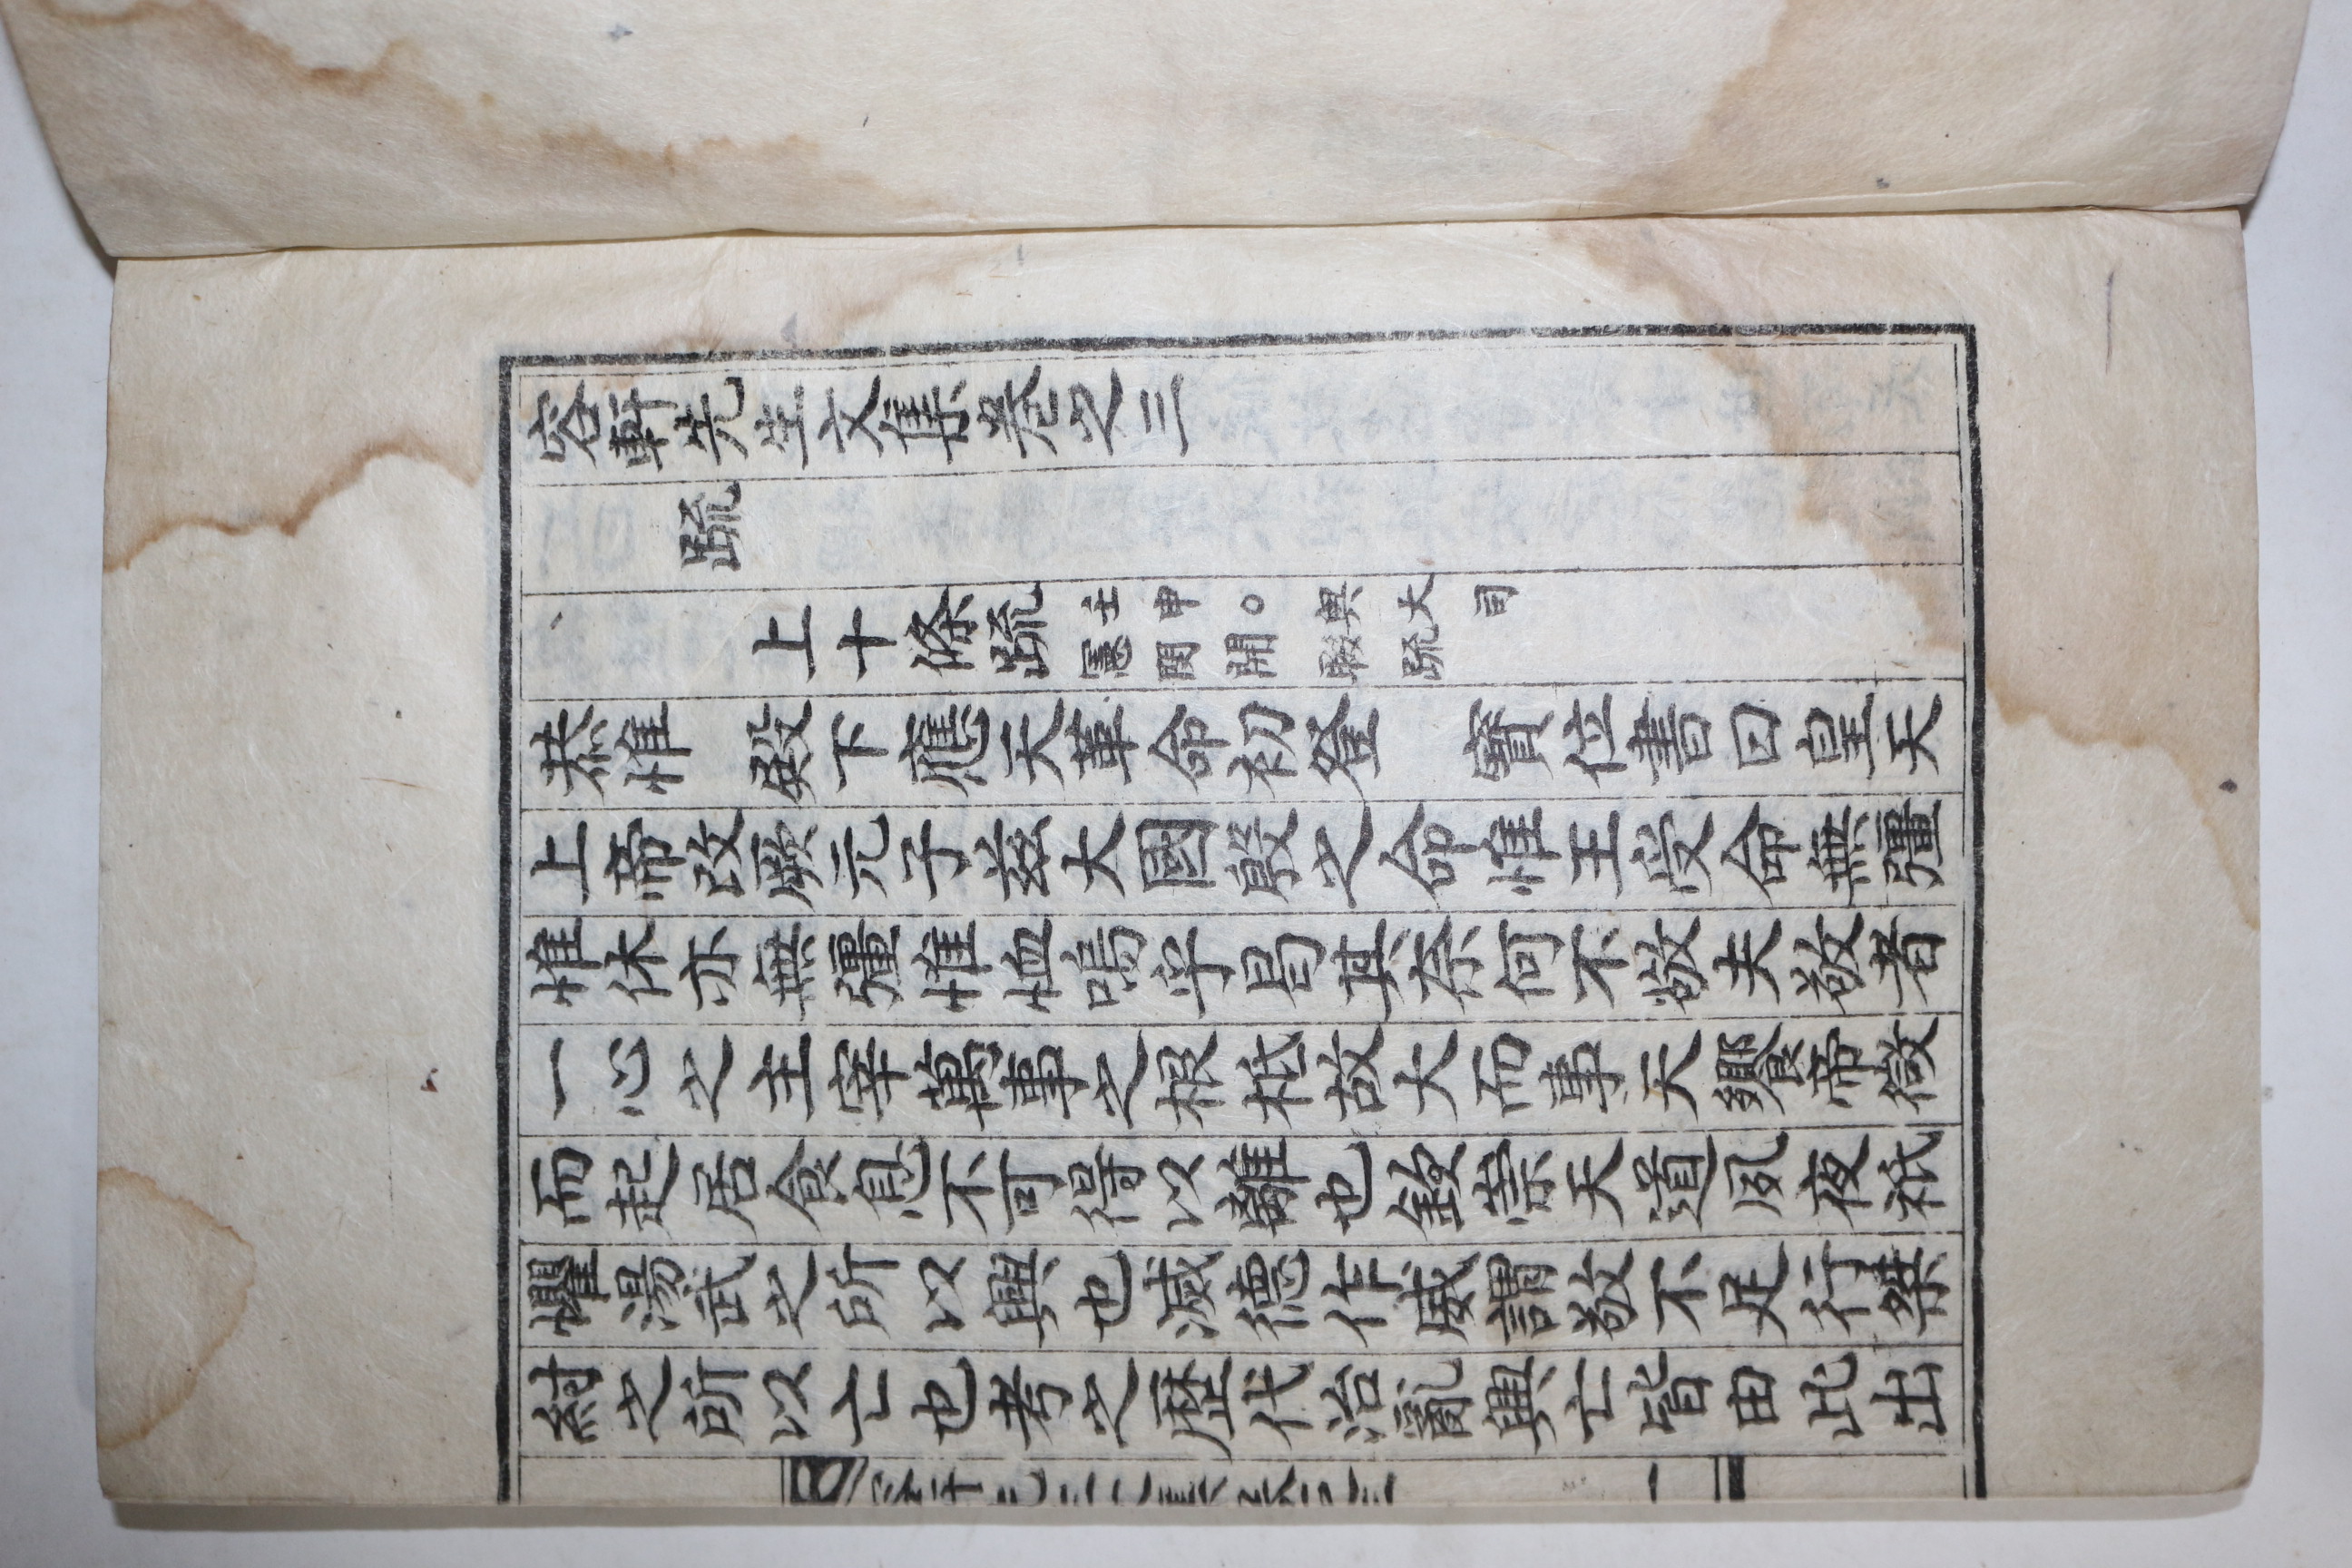 容軒先生文集卷之三
疏
上十條疏
壬申○與大司
憲閔開聯疏
恭惟 殿下應天革命初登 寶位書曰皇天
上帝改厥元子茲大國殷之命惟王受命無彊
惟休亦無彊惟恤嗚乎曷其奈何不敬夫敬者
一心之主宰萬事之根柢故大而事天饗帝微
而起居食息不可得以離也欽崇天道夙夜祇
懼湯武之所以興也滅德作威謂敬不足行桀
紂之所以亡也考之歷代治亂興亡皆由此出
一